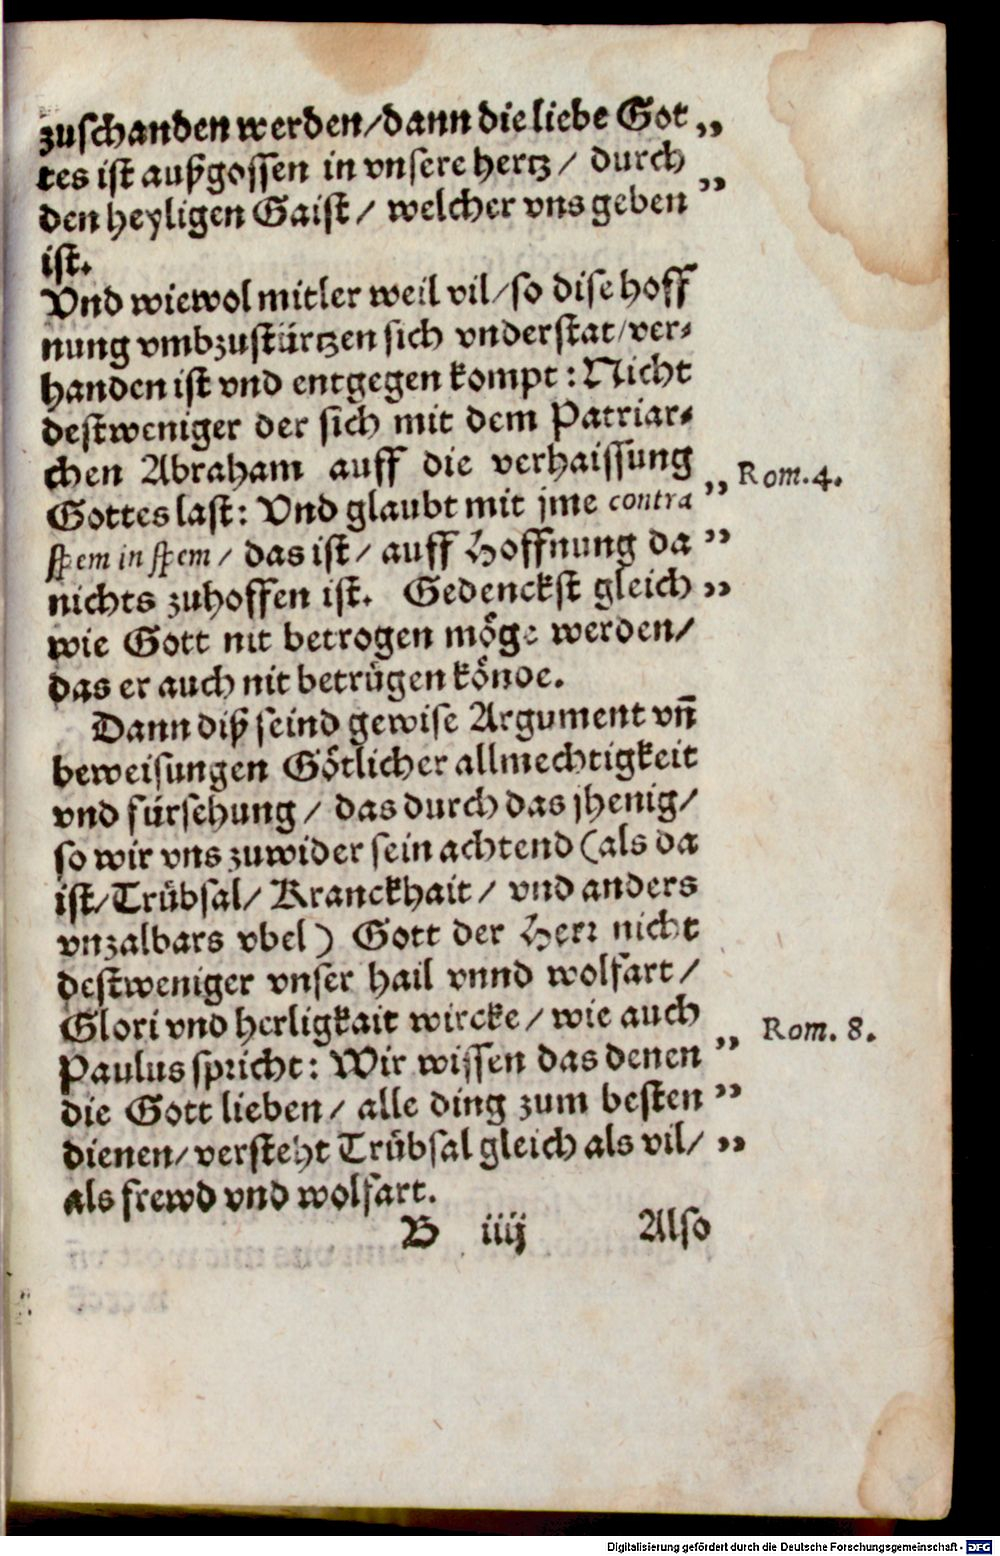 zuschanden werden/dann die liebe Got „
tes ist außgossen in vnsere hertz / durch
den heyligen Gaist / welcher vns geben „
ist.
Vnd wiewol mitler weil vil/so dise hoff
nung vmbzustürtzen sich vnderstat/ver-
handen ist vnd entgegen kompt: Nicht
destweniger der sich mit dem Patriar-
chen Abraham auff die verhaissung
Gottes last: Vnd glaubt mit jme contra „ Rom.4.
spem in spem / das ist / auff Hoffnung da „
nichts zuhoffen ist. Gedenckst gleich „
wie Gott nit betrogen möge werden/
das er auch nit betrügen könde.
Dann diß seind gewise Argument vñ
beweisungen Götlicher allmechtigkeit
vnd fürsehung / das durch das jhenig/
so wir vns zuwider sein achtend (als da
ist/Trübsal/ Kranckhait / vnd anders
vnzalbars vbel) Gott der Herr nicht
destweniger vnser hail vnnd wolfart /
Glori vnd herligkait wircke / wie auch
Paulus spricht: Wir wissen das denen „ Rom. 8.
die Gott lieben / alle ding zum besten „
dienen/versteht Trübsal gleich als vil/ „
als frewd vnd wolfart.
B iiij Also
Digitalisierung gefördert durch die Deutsche Forschungsgemeinschaft - DFG